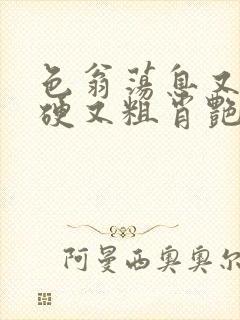 色翁荡息又
硬又粗肖艳
阿曼西奥奥尔